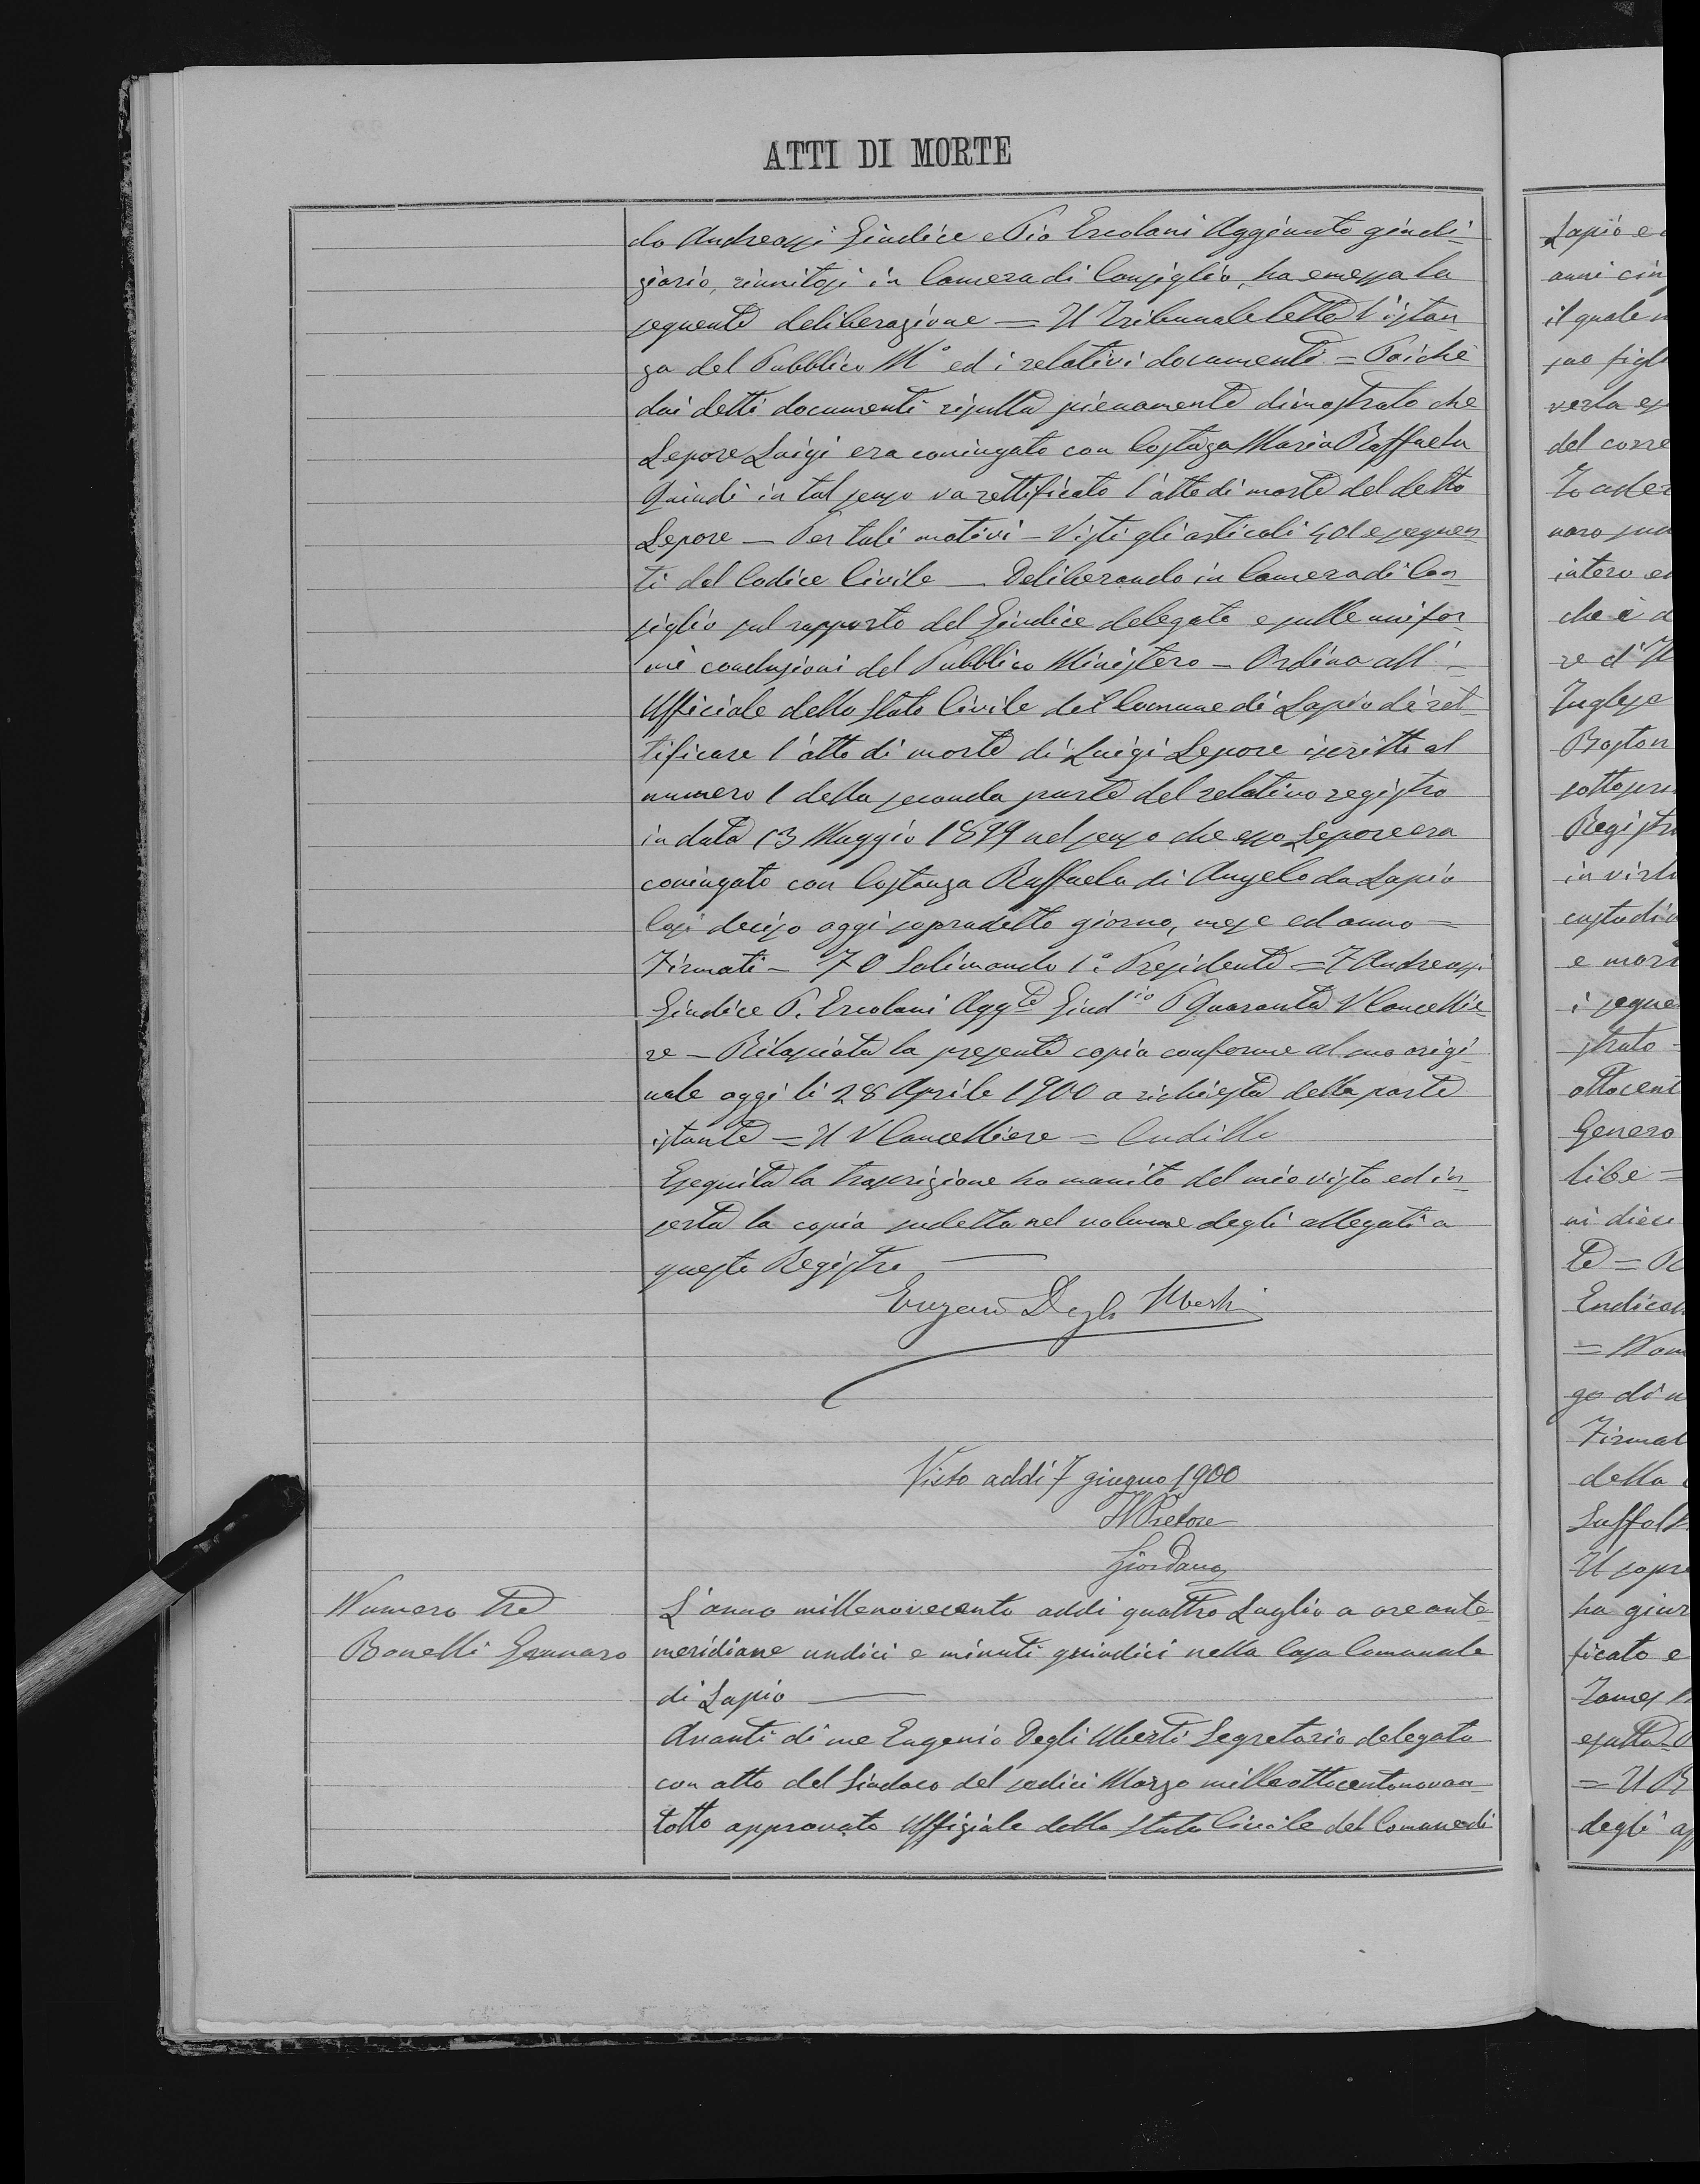 ATTI DI MORTE
do Andreassi Giudice e Pio Ercolani Aggiunto giudi-
ziario, riunitosi in Camera di Consiglio, ha emessa la
seguente deliberazione = Il Tribunale letta l'istan-
za del Pubblico M° ed i relativi documenti = Poiché
dai detti documenti risulta pienamente dimostrato che
Lepore Luigi era coniugato con Costanza Maria Raffaela
Quindi in tal senso va rettificato l'atto di morte del detto
Lepore - Per tali motivi - Visti gli articoli 401 e seguen-
ti del Codice Civile - Deliberando in Camera di Con-
siglio sul rapporto del Giudice delegato e sulle unifor-
mi conclusioni del Pubblico Ministero - Ordina all'-
Ufficiale dello Stato Civile del Comune di Lapio di ret-
tificare l'atto di morte di Luigi Lepore iscritto al
numero 1 della seconda parte del relativo registro
in data 13 Maggio 1899 nel senso che esso Lepore era
coniugato con Costanza Raffaela di Angelo da Lapio
Così deciso oggi sopradetto giorno, mese ed anno =
Firmati - F O Salimando 1° Presidente = F Andreassi
Giudice P. Ercolani Aggto Giudio P Quaranta V Cancellie-
re - Rilasciata la presente copia conforme al suo origi-
nale oggi li 28 Aprile 1900 a richiesta della parte
istante = Il V Cancelliere =
Eseguita la trascrizione ho munito del mio visto ed in-
serta la copia sudetta nel volume degli allegati a
questo Registro
Eugenio Degli Uberti
Visto addì 7 giugno 1900
Il Pretore
Giordano
Numero tre
Bonelli Gennaro
L'anno millenovecento addì quattro Luglio a ore ante-
meridiane undici e minuti quindici nella Casa Comunale
di Lapio
Avanti di me Eugenio Degli Uberti Segretario delegato
con atto del Sindaco del sedici Marzo milleottocentonovan-
totto approvato Uffiziale dello Stato Civile del Comune di
Lapio e
anni cin
il quale
suo figl
verla es
del corre
naro
intero
che è
re di
Inglese
Boston
sottopre
Registr
in virt
custodi
e mort
i segue
strato -
ottocent
Genero
libe =
ni dieci
te =
Endicot
go di
Firmat
della
Suffolk
Il sopr
ha giur
ficato e
James
esatta
= Il
degli